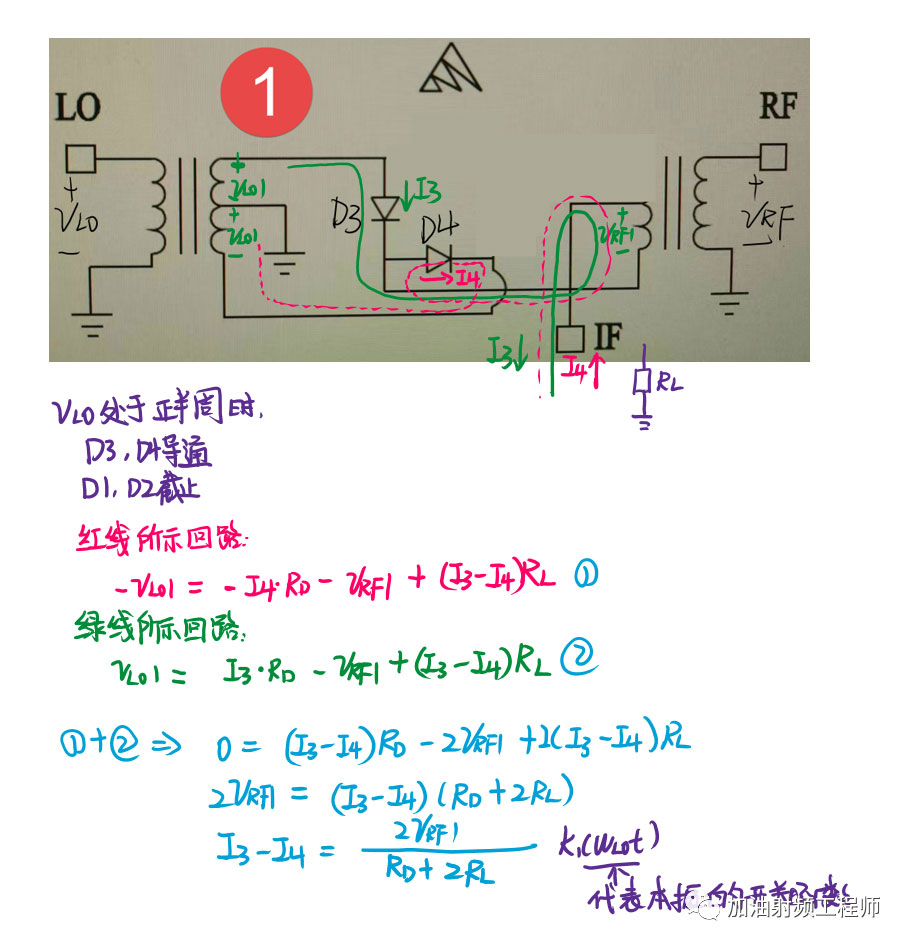 1
LO
RF
+
VLO1
+
VLO1
-
+
VLO
-
D3
I3
D4
I4
+
VRF1
-
+
VRF
-
IF
I3
I4
RL
VLO处于正半周时,
D3,D4导通
D1,D2截止
红线所示回路:
-VLO1 = -I4·RD - VRF1 + (I3-I4)RL ①
绿线所示回路:
VLO1 = I3·RD - VRF1 + (I3-I4)RL ②
①+② ⇒ 0 = (I3-I4)RD - 2VRF1 + 2(I3-I4)RL
2VRF1 = (I3-I4)(RD+2RL)
I3-I4 = 2VRF1 / RD+2RL K1(ωLOt)
代表本振的开关
加油射频工程师